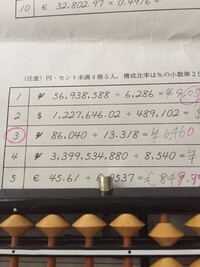 10 € 32,802.97 × 0.4976
(注意) 円・セント未満4捨5入，構成比率は%の小数第2
1 ¥ 56,938,588 ÷ 6.286 = ¥
2 $ 1,227,646.02 ÷ 489,102 =
3 ¥ 86,040 ÷ 13.318 = ¥6460
4 ¥ 3,399,534,880 ÷ 8,540 = ¥
5 € 45.61 ÷ 0537 = €849.9